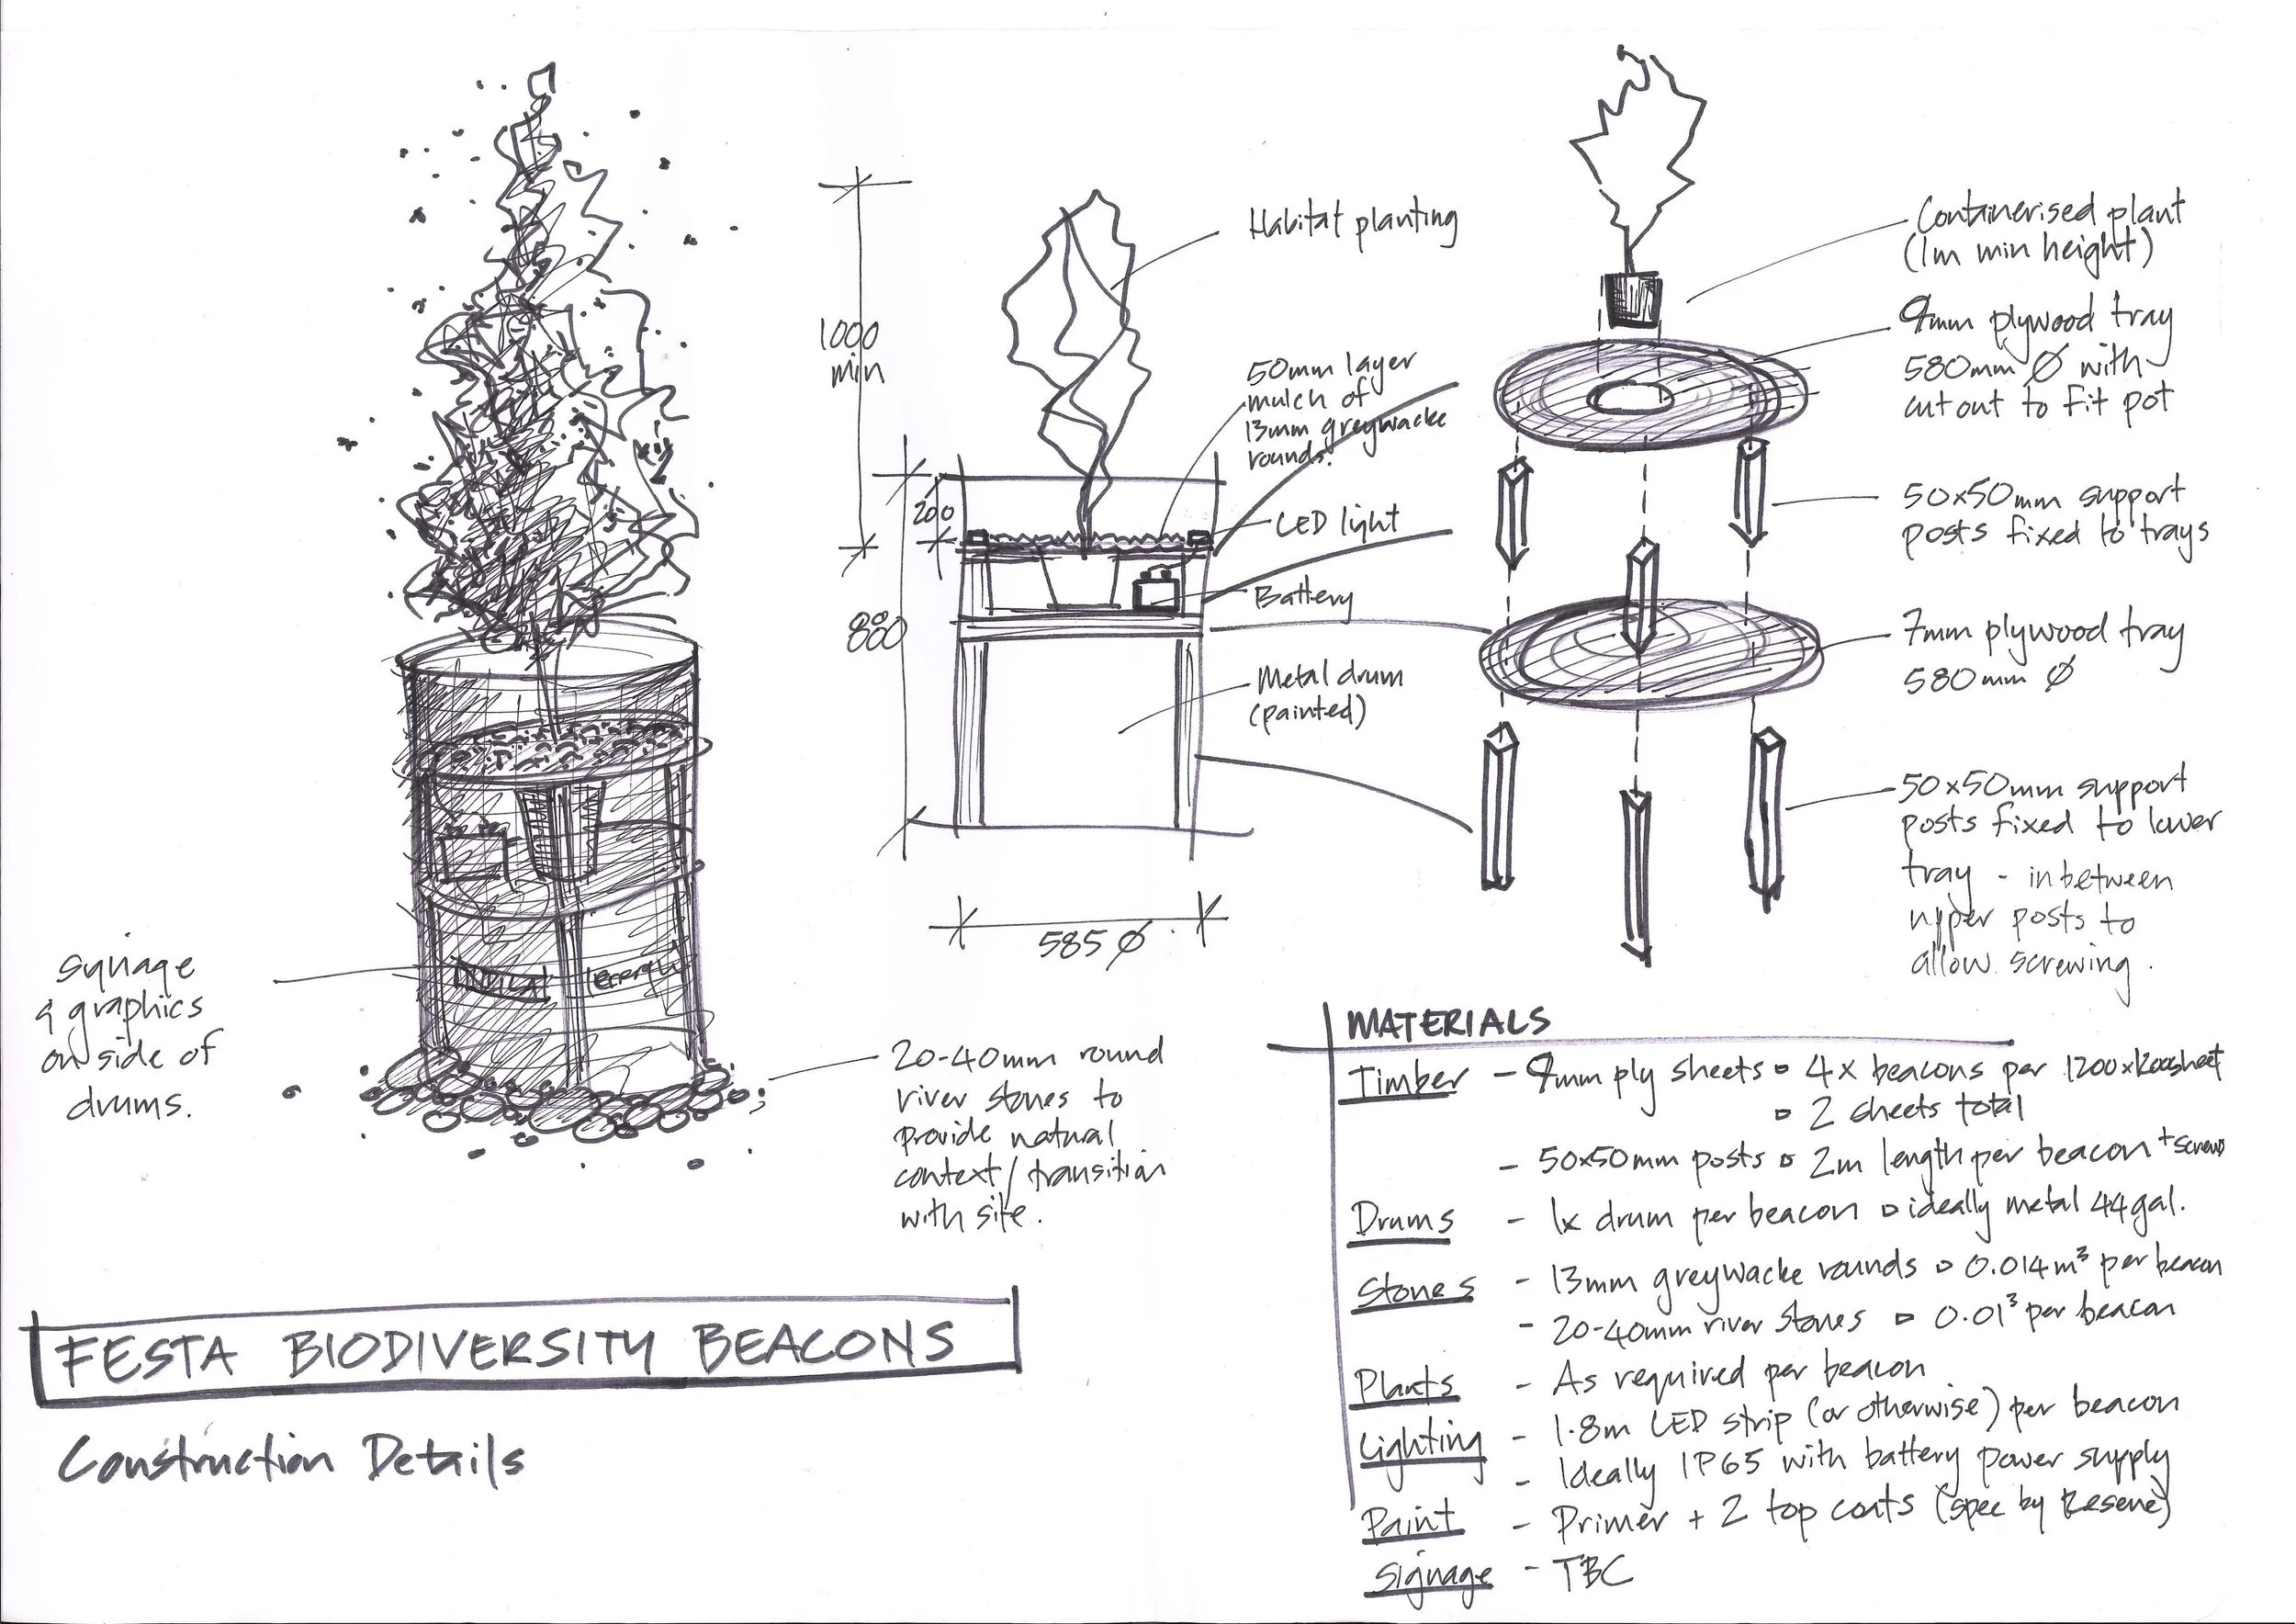 Habitat planting
1000
min
50mm layer
mulch of
13mm greywacke
rounds.
200
LED light
Battery
880
Metal drum
(painted)
585 Ø
Containerised plant
(1m min height)
9mm plywood tray
580mm Ø with
cut out to fit pot
50x50mm support
posts fixed to trays
7mm plywood tray
580mm Ø
50x50mm support
posts fixed to lower
tray - in between
upper posts to
allow screwing.
signage
& graphics
on side of
drums.
20-40mm round
river stones to
provide natural
context/transition
with site.
FESTA BIODIVERSITY BEACONS
Construction Details
MATERIALS
Timber - 9mm ply sheets = 4x beacons per 1200x sheet
= 2 sheets total
- 50x50mm posts = 2m length per beacon + screws
Drums - 1x drum per beacon = ideally metal 44gal.
Stones - 13mm greywacke rounds = 0.014m³ per beacon
- 20-40mm river stones = 0.01³ per beacon
Plants - As required per beacon
Lighting - 1.8m LED strip (or otherwise) per beacon
- Ideally IP65 with battery power supply
Paint - Primer + 2 top coats (spec by Resene)
Signage - TBC